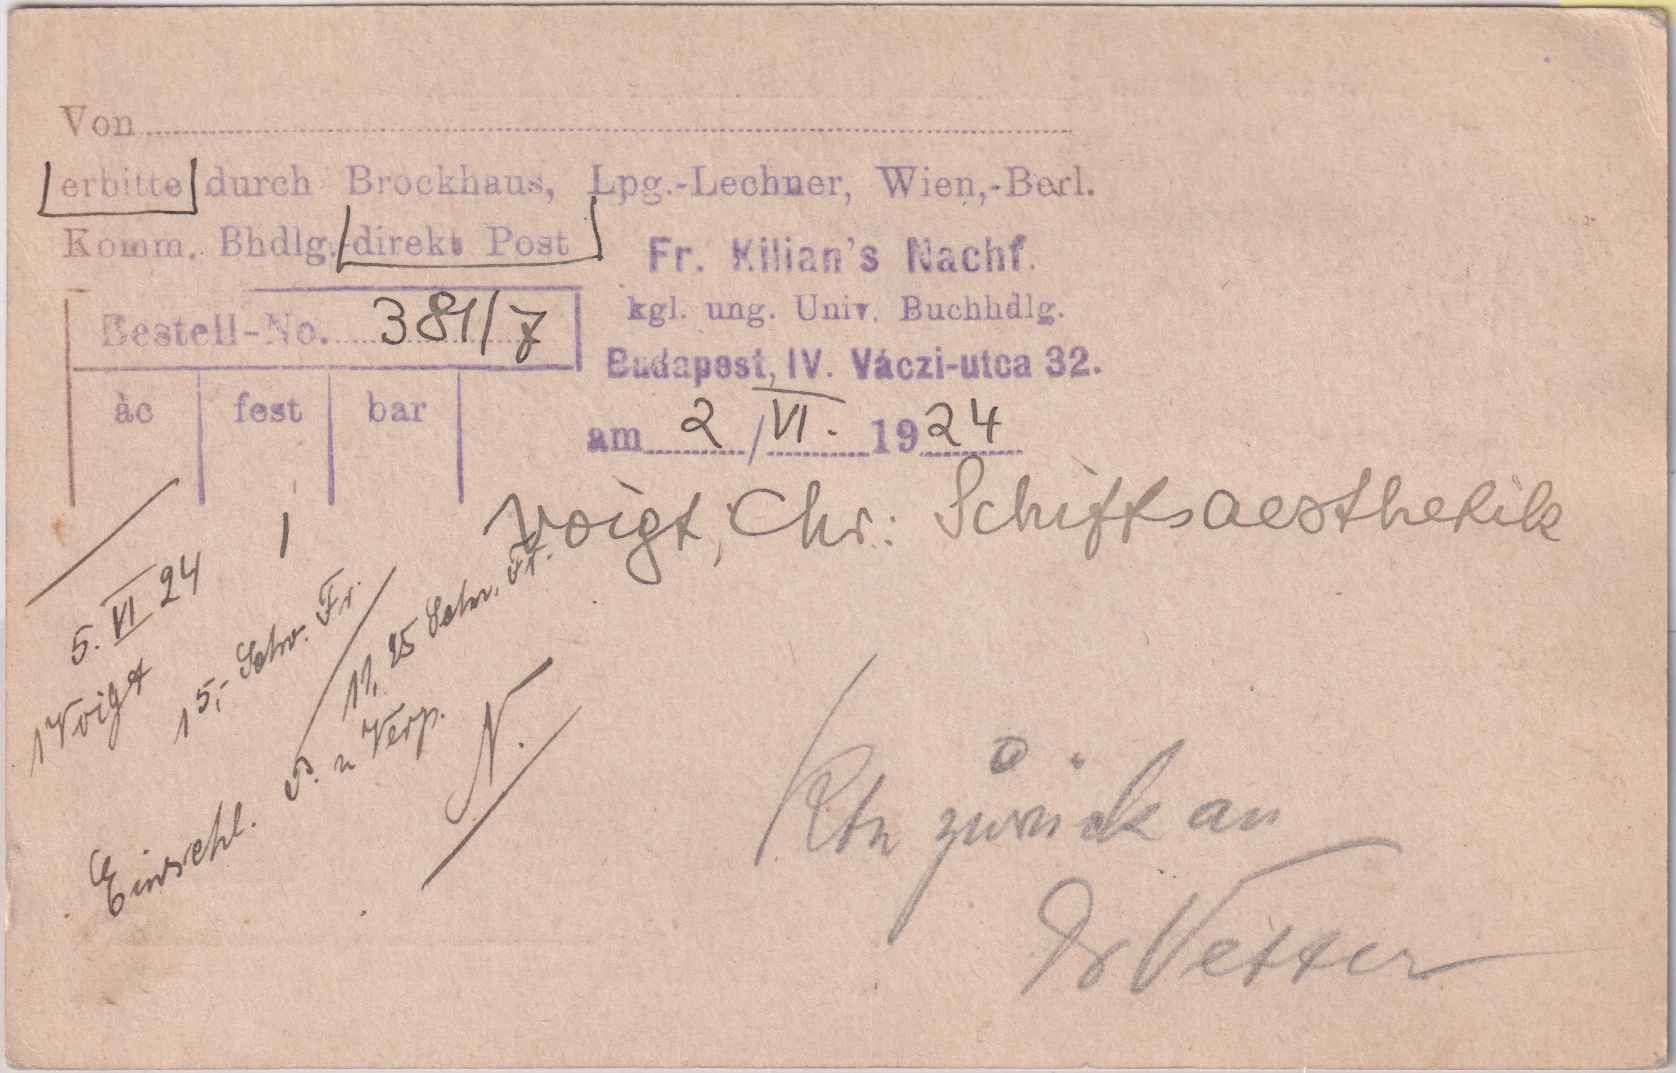 Von
erbitte durch Brockhaus, Lpg.-Lechner, Wien,-Berl.
Komm. Bhdlg. direkt Post
Fr. Kilian's Nachf.
kgl. ung. Univ. Buchhdlg.
Budapest, IV. Váczi-utca 32.
am 2/VI. 1924
Bestell-No. 381/7
àc fest bar
1
Voigt, Chr.: Schiffsaesthetik
5. VI 24
1 Voigt
15,- Schw. Fr.
11,25 Schw. Fr.
Einschl. P. u Verp.
N.
zurück an
Dr Vetter